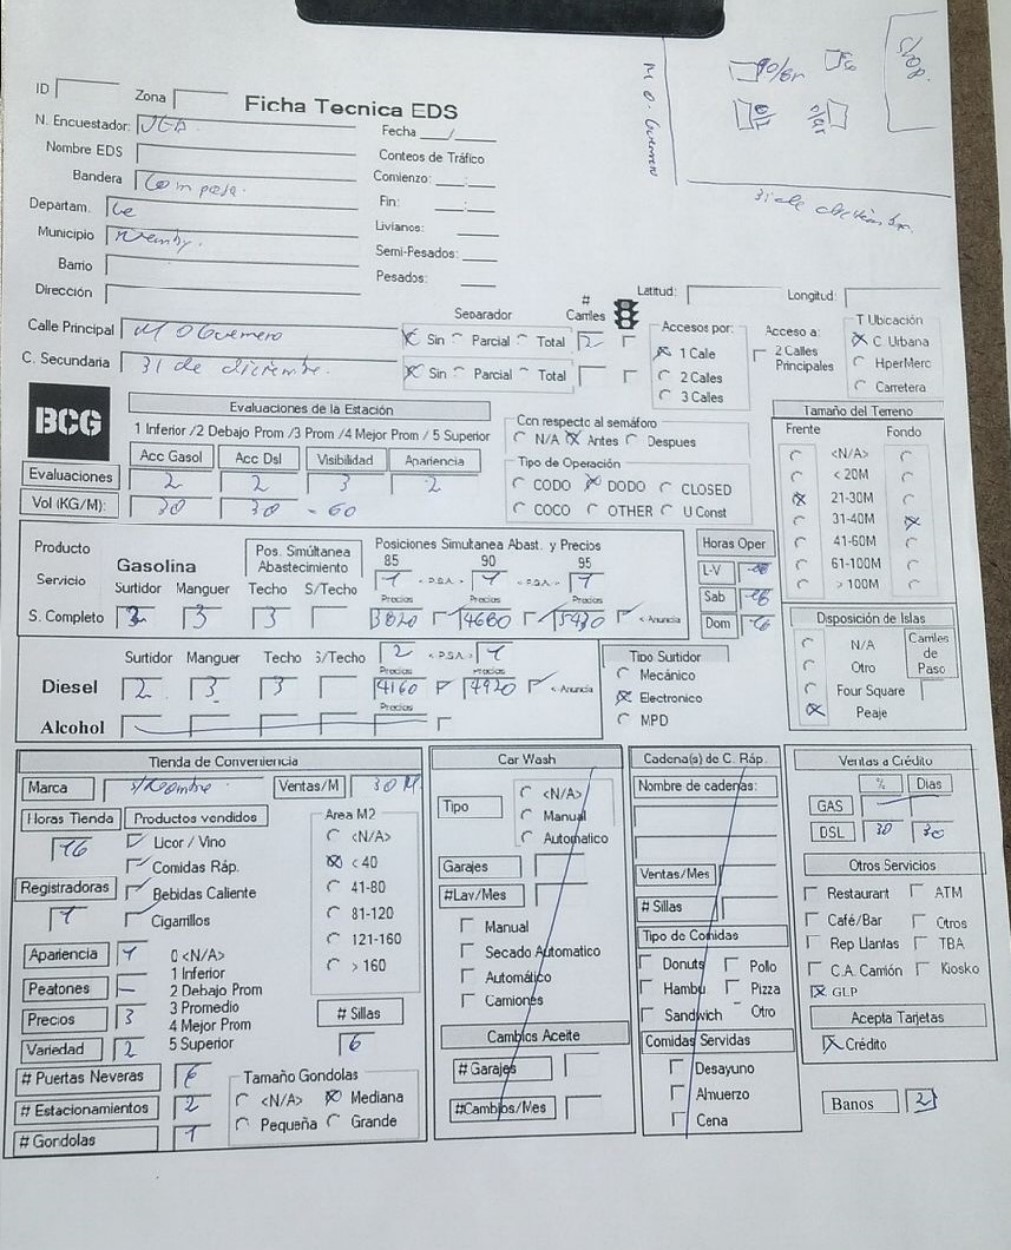 Shop.
90/Gr
M O. Guerrero
31 de diciembre.
ID
Zona
Ficha Tecnica EDS
N. Encuestador:
Fecha ___/___
Nombre EDS
Conteos de Tráfico
Bandera Compasa.
Comienzo: ___:___
Departam. Ce
Fin: ___:___
Municipio Ñemby.
Livianos:
Semi-Pesados:
Barrio
Pesados:
Dirección
Latitud:
Longitud:
Separador
# Carriles
Calle Principal M O Guerrero
Sin Parcial Total 2
C. Secundaria 31 de diciembre.
Sin Parcial Total
Accesos por:
1 Cale
2 Cales
3 Cales
Acceso a:
2 Calles Principales
T Ubicación
C. Urbana
HperMerc
Carretera
BCG
Evaluaciones de la Estación
1 Inferior /2 Debajo Prom /3 Prom /4 Mejor Prom / 5 Superior
Acc Gasol Acc Dsl Visibilidad Apariencia
Evaluaciones 2 2 3 2
Vol (KG/M): 30 30 - 60
Con respecto al semáforo
N/A Antes Despues
Tipo de Operación
CODO DODO CLOSED
COCO OTHER U Const
Tamaño del Terreno
Frente Fondo
<N/A>
< 20M
21-30M
31-40M
41-60M
61-100M
> 100M
Producto
Servicio
Gasolina
Pos. Simúltanea Abastecimiento
Posiciones Simultanea Abast. y Precios
85 90 95
1 < P.S.A. > 1 < P.S.A. > 1
Surtidor Manguer Techo S/Techo
Precios Precios Precios
S. Completo 3 3 3 3820 4680 5430 <- Anuncia
Horas Oper
L-V
Sab 16
Dom 16
Surtidor Manguer Techo S/Techo 2 < P.S.A. > 1
Precios Precios
Diesel 2 3 3 4160 4920 <- Anuncia
Precios
Alcohol
Tipo Surtidor
Mecánico
Electronico
MPD
Disposición de Islas
N/A
Otro
Four Square
Peaje
Carriles de Paso
Tienda de Conveniencia
Marca s/Nombre Ventas/M 30 M
Horas Tienda 16
Productos vendidos
Licor / Vino
Comidas Ráp.
Bebidas Caliente
Cigarrillos
Registradoras 1
Area M2
<N/A>
< 40
41-80
81-120
121-160
> 160
Apariencia
Peatones —
Precios 3
Variedad 2
0 <N/A>
1 Inferior
2 Debajo Prom
3 Promedio
4 Mejor Prom
5 Superior
# Sillas 6
# Puertas Neveras
# Estacionamientos 2
# Gondolas 1
Tamaño Gondolas
<N/A> Mediana
Pequeña Grande
Car Wash
Tipo
<N/A>
Manual
Automatico
Garajes
#Lav/Mes
Manual
Secado Automatico
Automático
Camiones
Cambios Aceite
# Garajes
#Cambios/Mes
Cadena(s) de C. Ráp.
Nombre de cadenas:
Ventas/Mes
# Sillas
Tipo de Comidas
Donuts Pollo
Hambu Pizza
Sandwich Otro
Comidas Servidas
Desayuno
Almuerzo
Cena
Ventas a Crédito
% Dias
GAS
DSL 30 30
Otros Servicios
Restaurant ATM
Café/Bar Otros
Rep Llantas TBA
C.A. Camión Kiosko
GLP
Acepta Tarjetas
Crédito
Banos 2